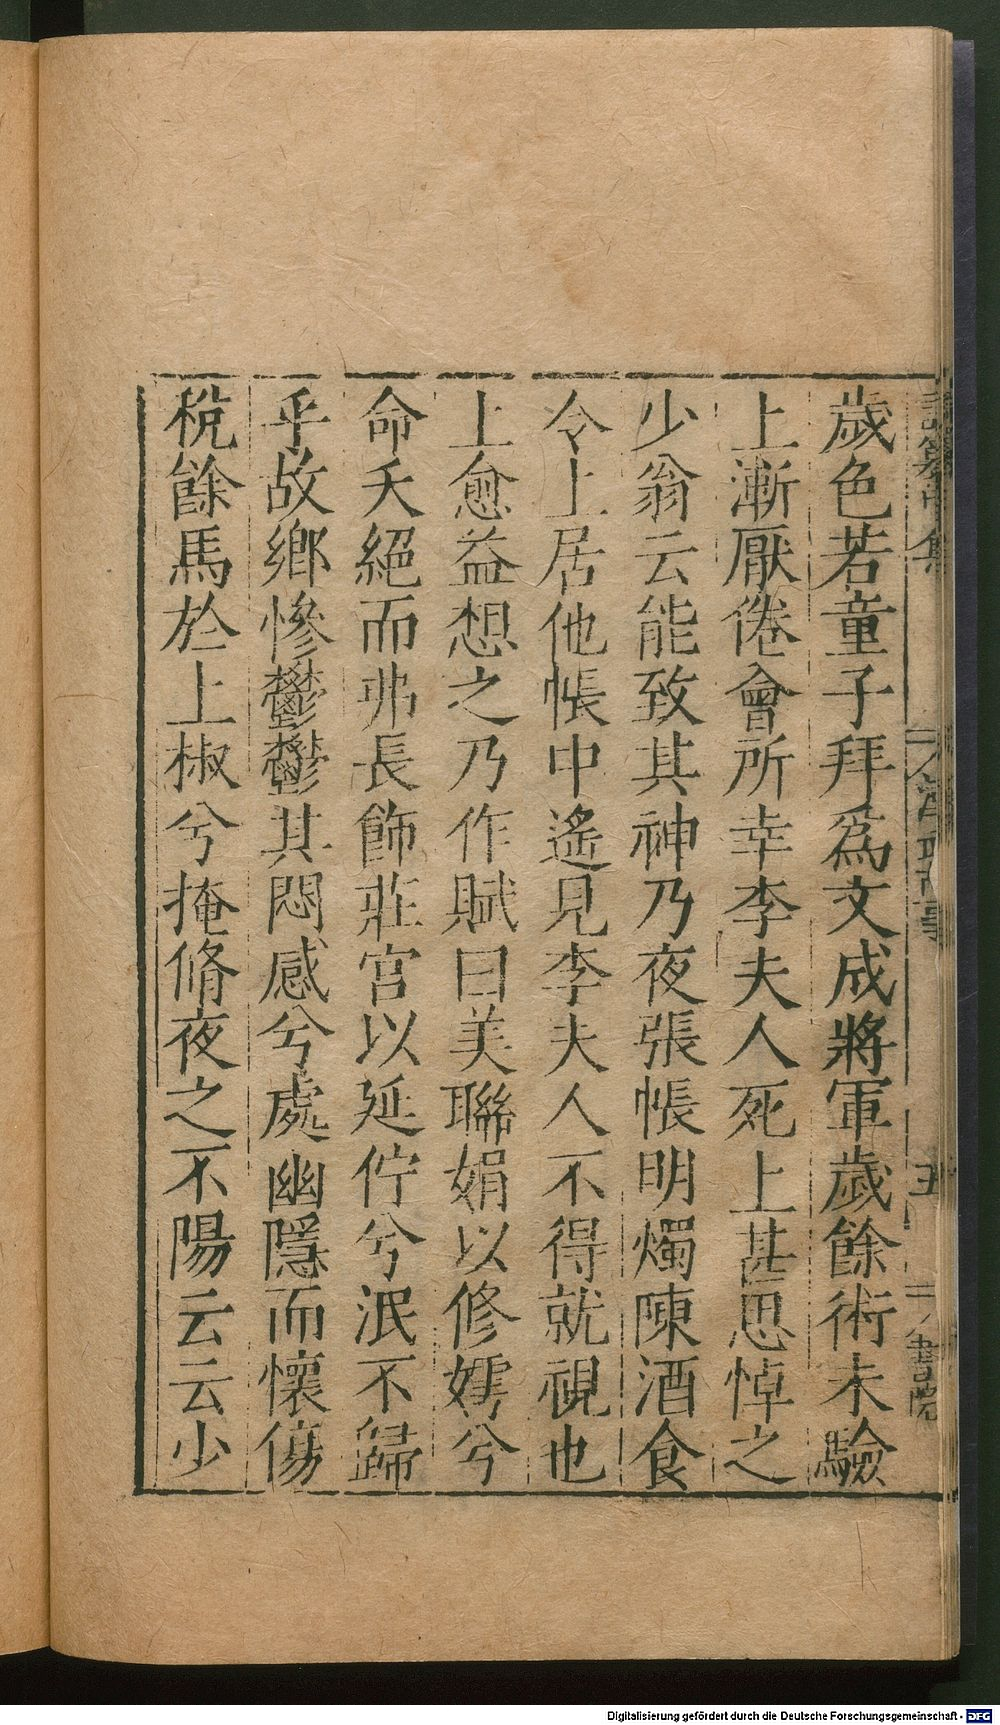 歲色若童子拜爲文成將軍歲餘術未驗
上漸厭倦會所幸李夫人死上甚思悼之
少翁云能致其神乃夜張帳明燭陳酒食
令上居他帳中遙見李夫人不得就視也
上愈益想之乃作賦曰美聯娟以修嫮兮
命夭絕而弗長飾莊宮以延佇兮泯不歸
乎故鄉慘鬱鬱其悶感兮處幽隱而懷傷
稅餘馬於上椒兮掩脩夜之不陽云云少
五
書院
Digitalisierung gefördert durch die Deutsche Forschungsgemeinschaft - DFG